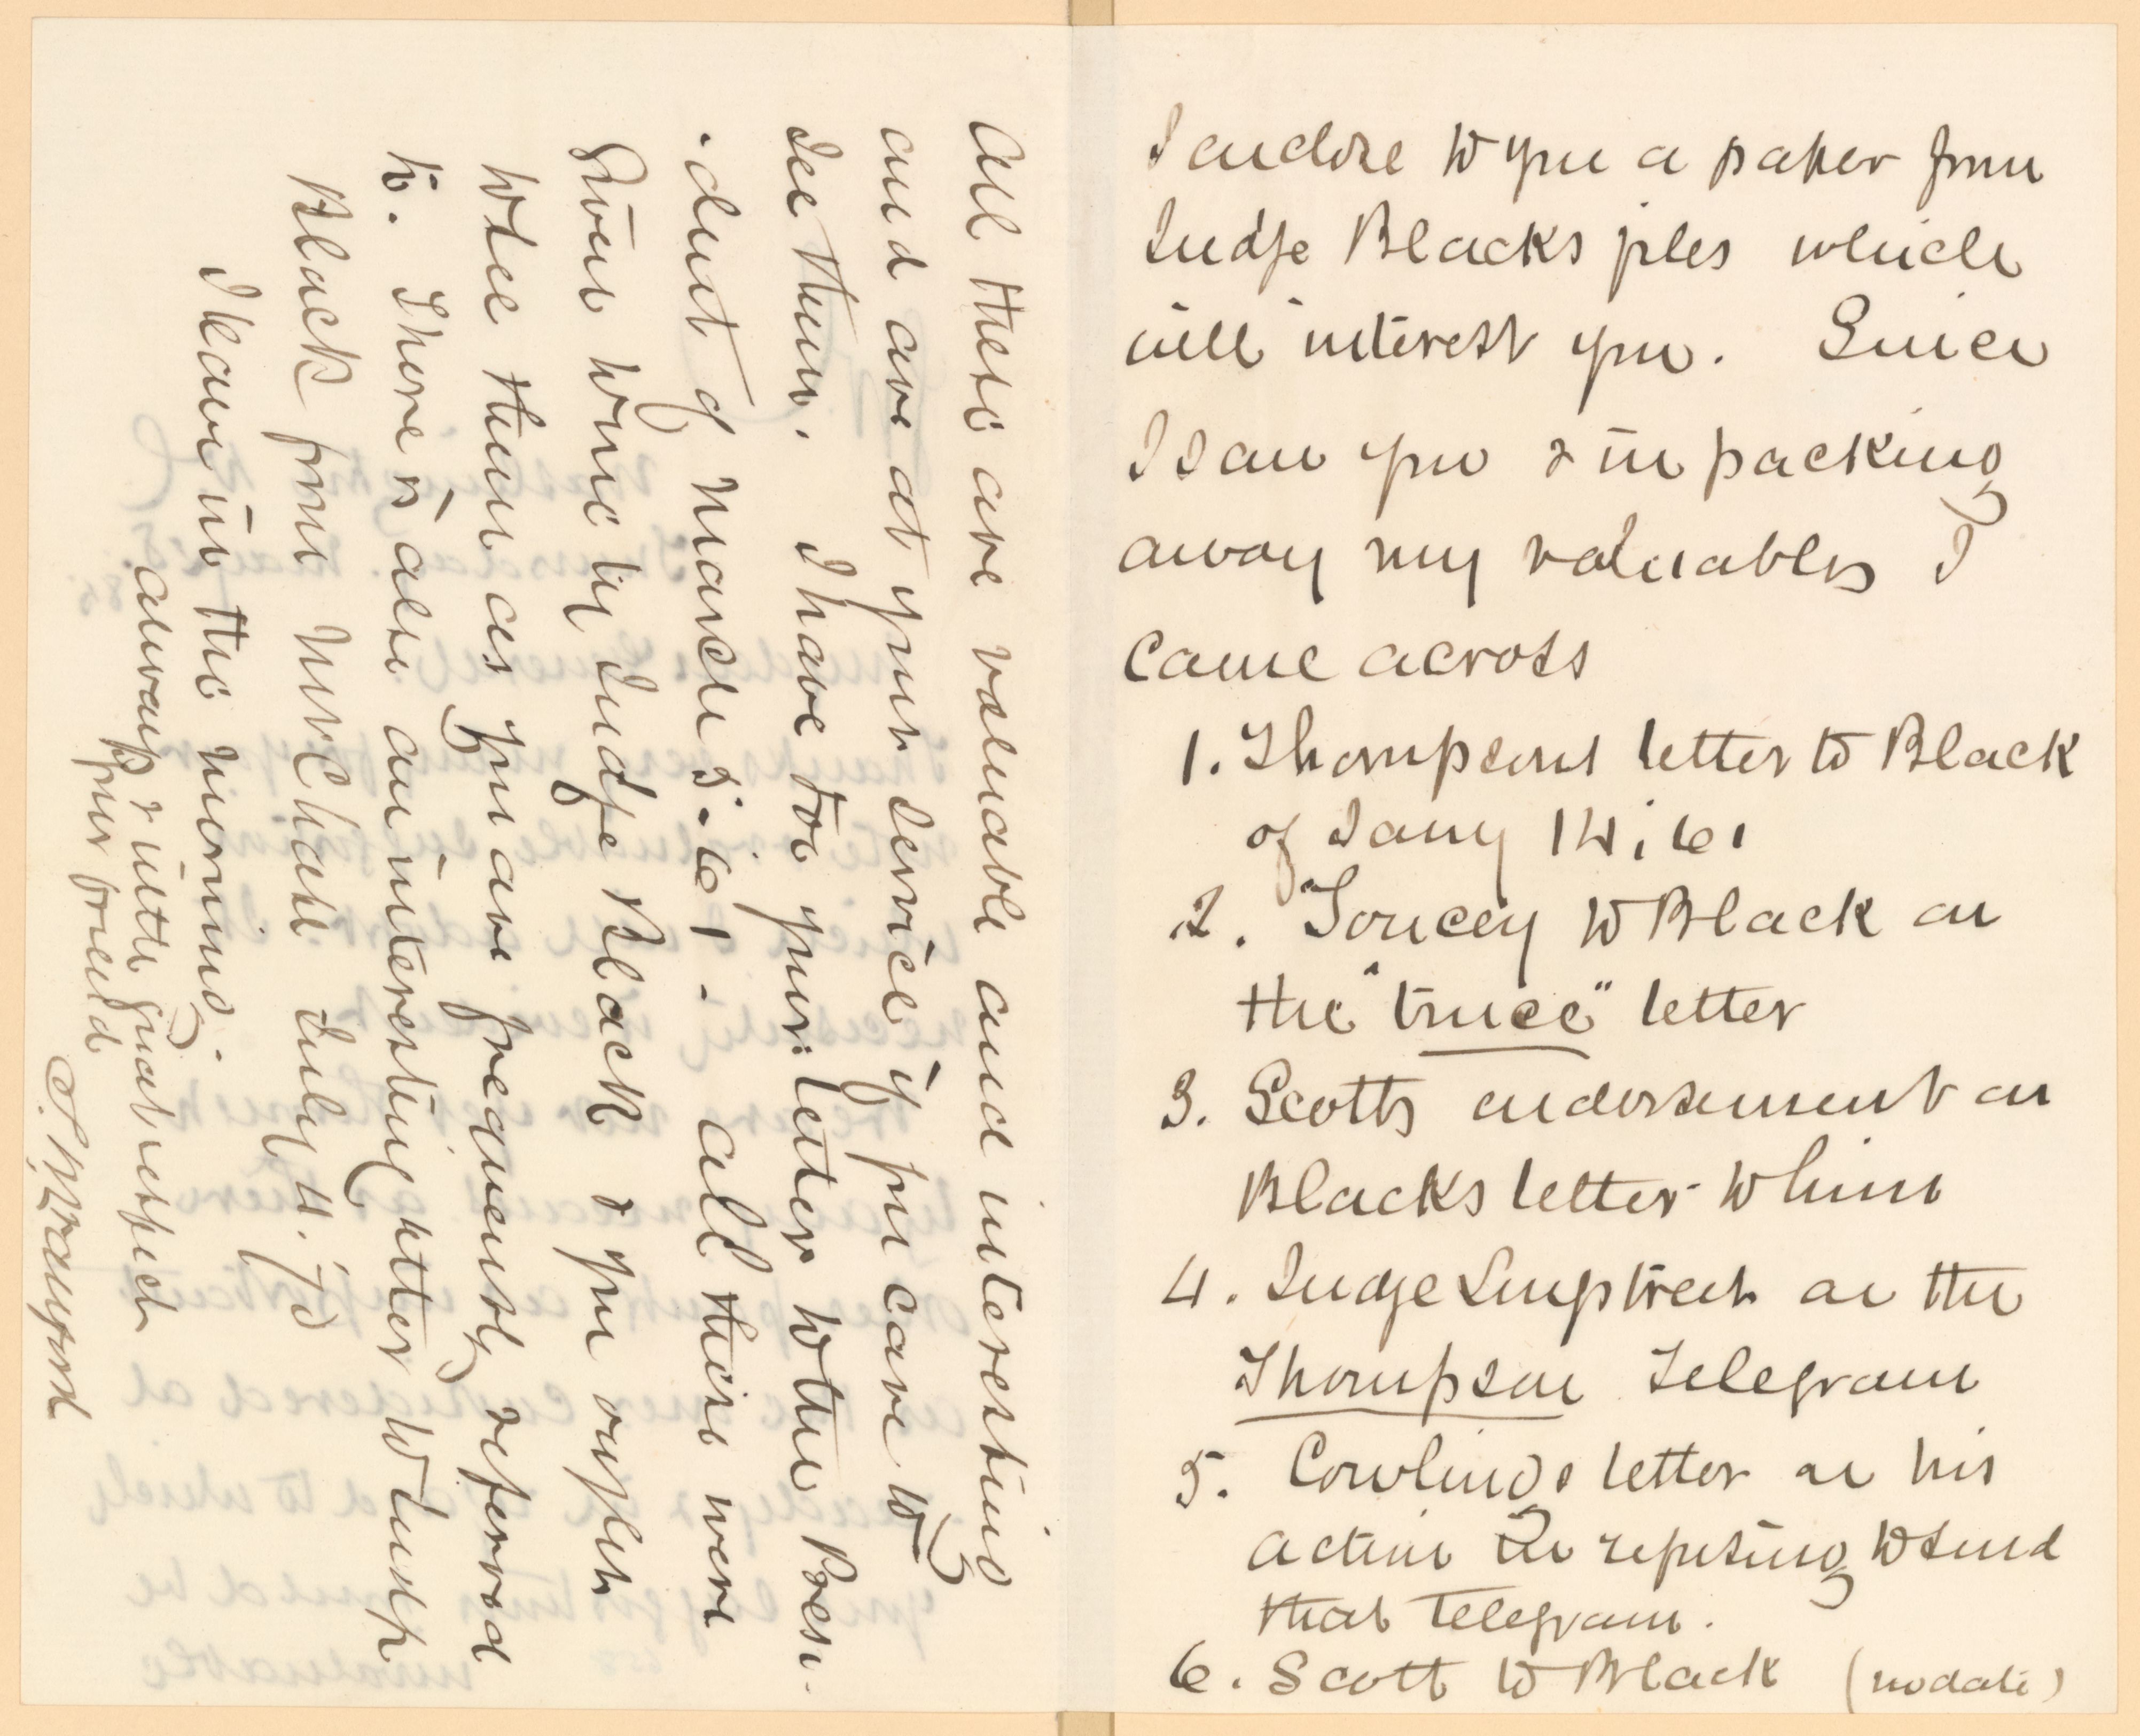 I enclose to you a paper from
Judge Blacks files which
will interest you. Since
I saw you & in packing
away my valuables I
came across
1. Thompsons letter to Black
of Jany 14, 61
2. Toucey to Black on
the "truce" letter
3. Scotts endorsement on
Blacks letter to him
4. Judge on the
Thompson Telegram
5. letter on his
action in refusing to send
that Telegram.
6. Scott to Black (no date)
All these are valuable and interesting
and are at your service if you care to
see them. I have too your letter to the Presi-
dent of March 5. 61. All these were
given to me by Judge Black & you ought
to see them as you are frequently referred
to. There is also an interesting letter to Judge
Black from Mr Chase July 4. 70
I leave in the morning.
always & with great respect
your friend